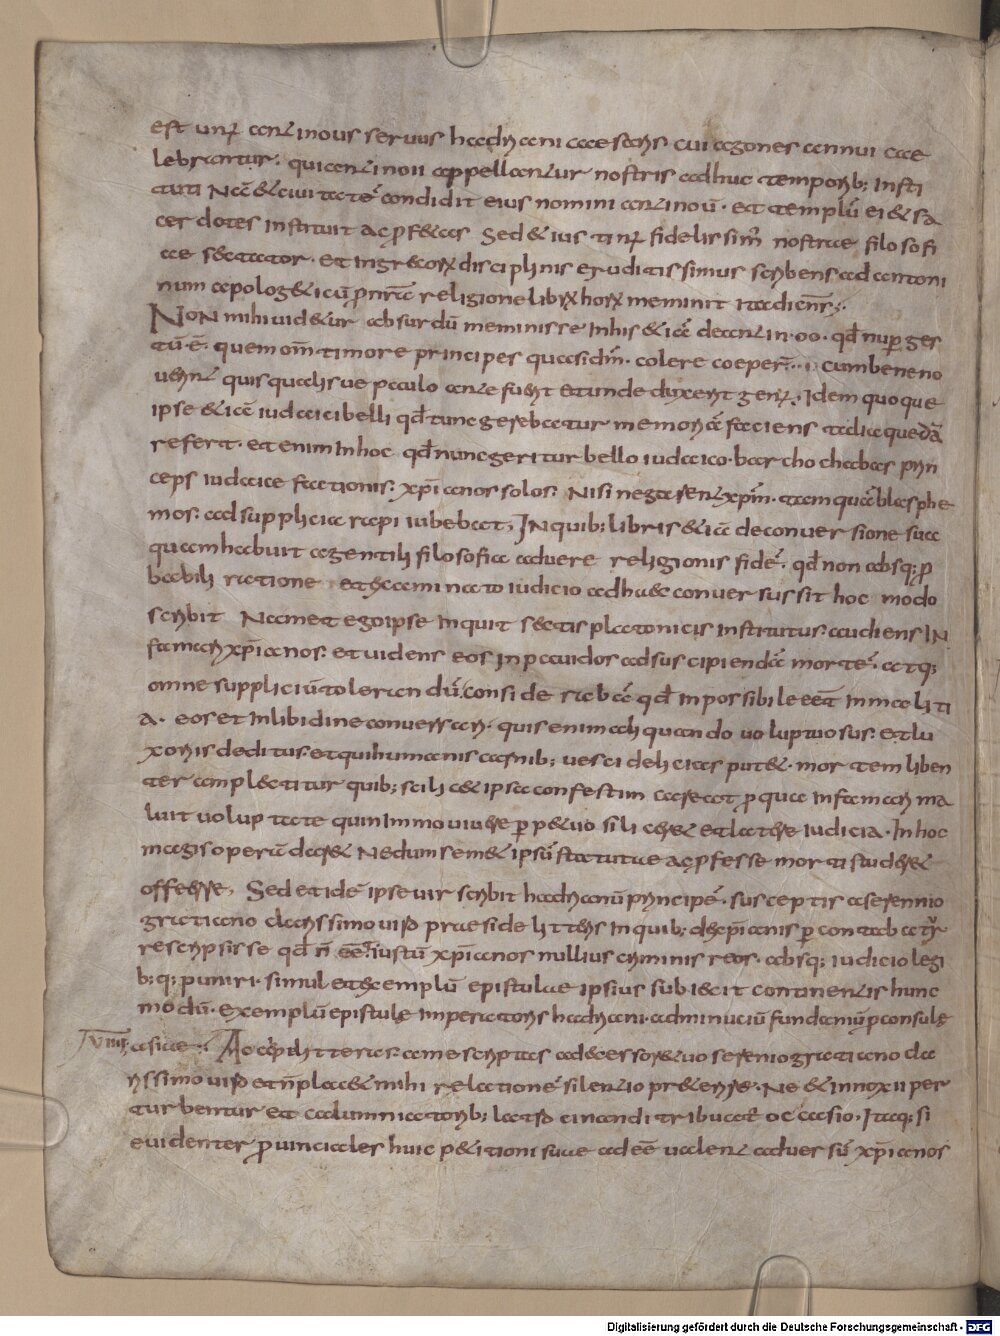 est unde antinous seruus hadriani caesaris cui agones annui cae
lebrantur· qui antinoii appellantur nostris adhuc temporib; insti
tuti Nā & ciuitatē condidit eius nomini antinoū· et templū ei & sa
cerdotes instituit ac pf&as Sed & ius tin; fidelissim̄ nostrae filosofi
ae sectator· et in grecorꝝ disciplinis eruditissimus scribens ad antoni
num apolog&icū p̄ nrā religione librꝝ horꝝ meminit ita diens;·
Non mihi uid&ur absurdū meminisse in his & iā de antinoo· qd̄ nuper ges
tū ē· quem om̄ timore principes quasi dm̄· colere coeper̄· cum bene no
uerint quis qualisue paulo ante fuerit et unde duxerit genꝰ; Idem quoque
ipse & iā iudaici belli qd̄ tunc gerebatur memoriā faciens talia quedā
refert· et enim in hoc qd̄ nunc geritur bello iudaico· barchochabas prin
ceps iudaice factionis: xp̄ianos solos: Nisi negasent xpm̄· tamquā blasphe
mos: ad supplicia rapi iubebat; In quib; libris & iā de conuersione sua
quam habuit a gentili filosofia aduere religionis fidē· qd̄ non absq; p
babili ratione et examinato iudicio ad hanc conuersus sit hoc modo
scribit Nam et ego ipse inquit sectis platonicis institutus: audiens In
famari xp̄ianos: et uidens eos inpauidos ad suscipiendā mortē· atq;
omne suppliciū tolerandū; considerabā qd̄ inpossibile eēt in maliti
a· eos et in libidine conuersari· quis enim aliquando uoluptuosus· et lu
xoriis deditus· et qui humanis carnib; uesci delicias put&· mortem liben
ter amplectitur quib; scilic& ipsa confestim careat p qua infamari ma
luit uoluptate quin immo uiuere p̄p&uo si lic&et et latere iudicia· In hoc
magis operā dar& Nedum sem& ipsū statutae ac pfesse morti studer&
offerre; Sed et idē ipse uir scribit hadrianū principē· susceptis a serennio
gratiano clarissimo uiro praeside litteris In quib; de xp̄ianis p̄contabatur
rescripsisse qd̄ n̄ eēt iustū xp̄ianos nullius criminis reos· absq; iudicio legi
b;q; puniri· simul et exemplū epistulae ipsius subiecit continentis hunc
modū· exemplū epistulę imperatoris hadriani· ad minuciū fundanū p̄consulę
VIIII asiae·: Accepi litteras a me scriptas ad decessore tuo serenio gratiano cla
rissimo uiro et n̄ plac& mihi relationē silentio pr&erire· Ne & innoxii per
turbentur et calumniatorib; latrocinandi tribuatur occasio; Itaq; si
euidenter p̄uinciales huic p&itioni suae ad eē ualent aduersū xp̄ianos